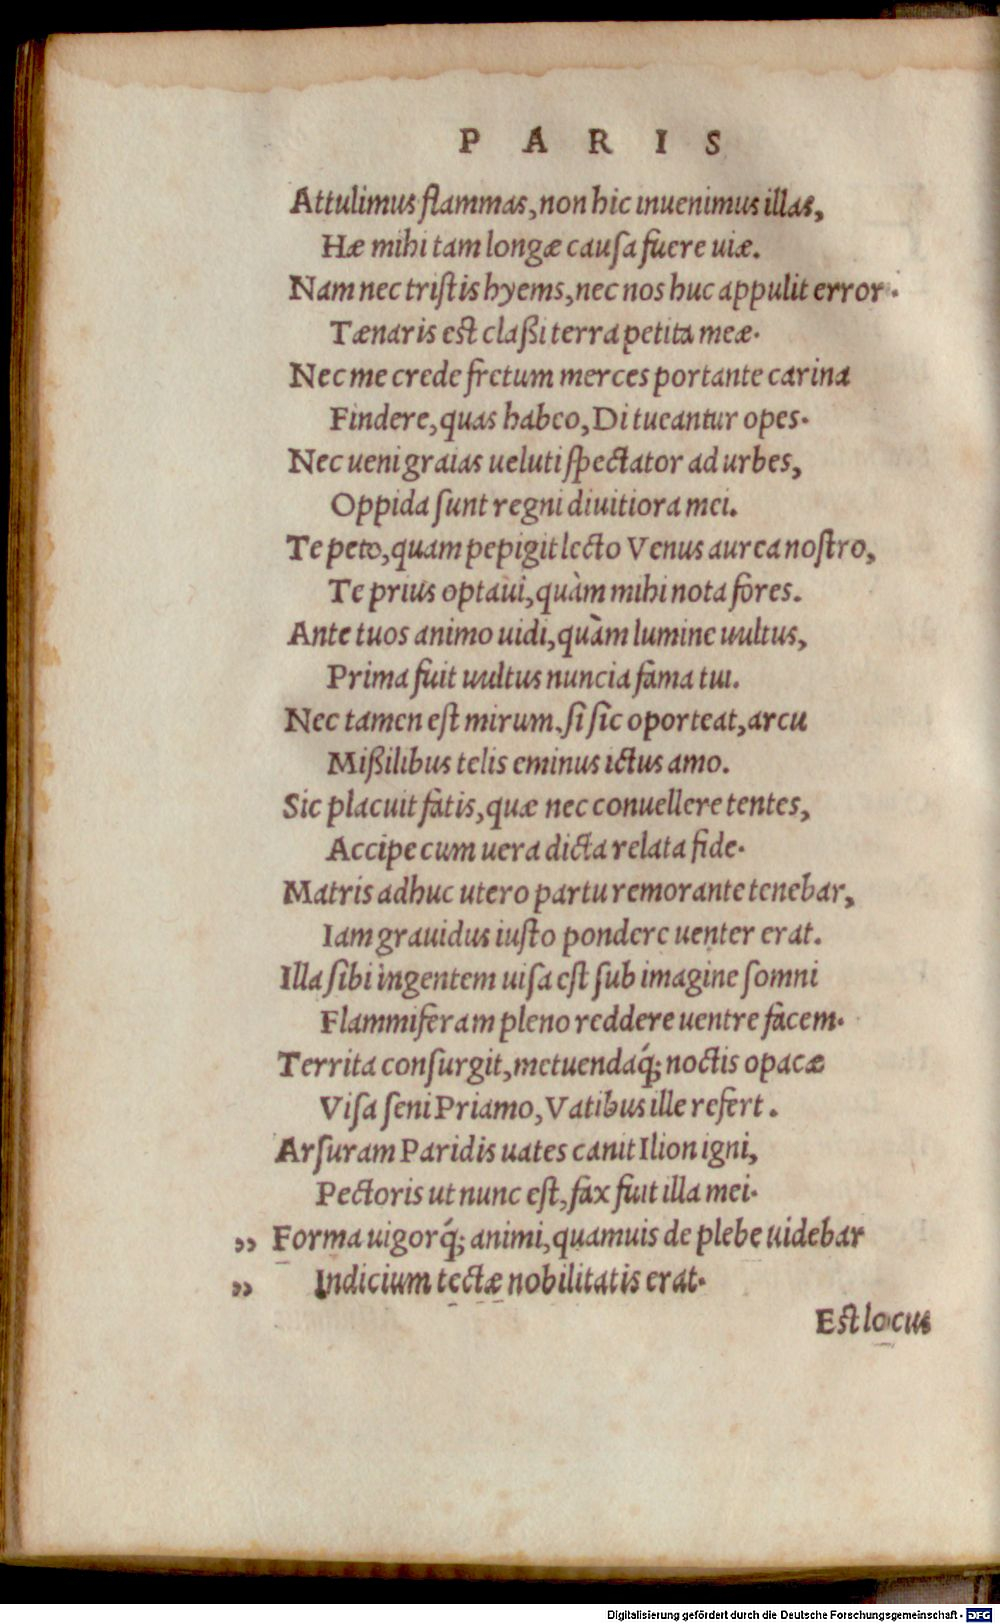 PARIS
Attulimus flammas, non hic inuenimus illas,
Hæ mihi tam longæ causa fuere uiæ.
Nam nec tristis hyems, nec nos huc appulit error.
Tænaris est classi terra petita meæ.
Nec me crede fretum merces portante carina
Findere, quas habeo, Di tueantur opes.
Nec ueni graias ueluti spectator ad urbes,
Oppida sunt regni diuitiora mei.
Te peto, quam pepigit lecto Venus aurea nostro,
Te prius optaui, quàm mihi nota fores.
Ante tuos animo uidi, quàm lumine uultus,
Prima fuit uultus nuncia fama tui.
Nec tamen est mirum, si sic oporteat, arcu
Missilibus telis eminus ictus amo.
Sic placuit fatis, quæ nec conuellere tentes,
Accipe cum uera dicta relata fide.
Matris adhuc utero partu remorante tenebar,
Iam grauidus iusto pondere uenter erat.
Illa sibi ingentem uisa est sub imagine somni
Flammiferam pleno reddere uentre facem.
Territa consurgit, metuendaq́; noctis opacæ
Visa seni Priamo, Vatibus ille refert.
Arsuram Paridis uates canit Ilion igni,
Pectoris ut nunc est, fax fuit illa mei.
„ Forma uigorq́; animi, quamuis de plebe uidebar
„ Indicium tectæ nobilitatis erat.
Est locus
Digitalisierung gefördert durch die Deutsche Forschungsgemeinschaft - DFG